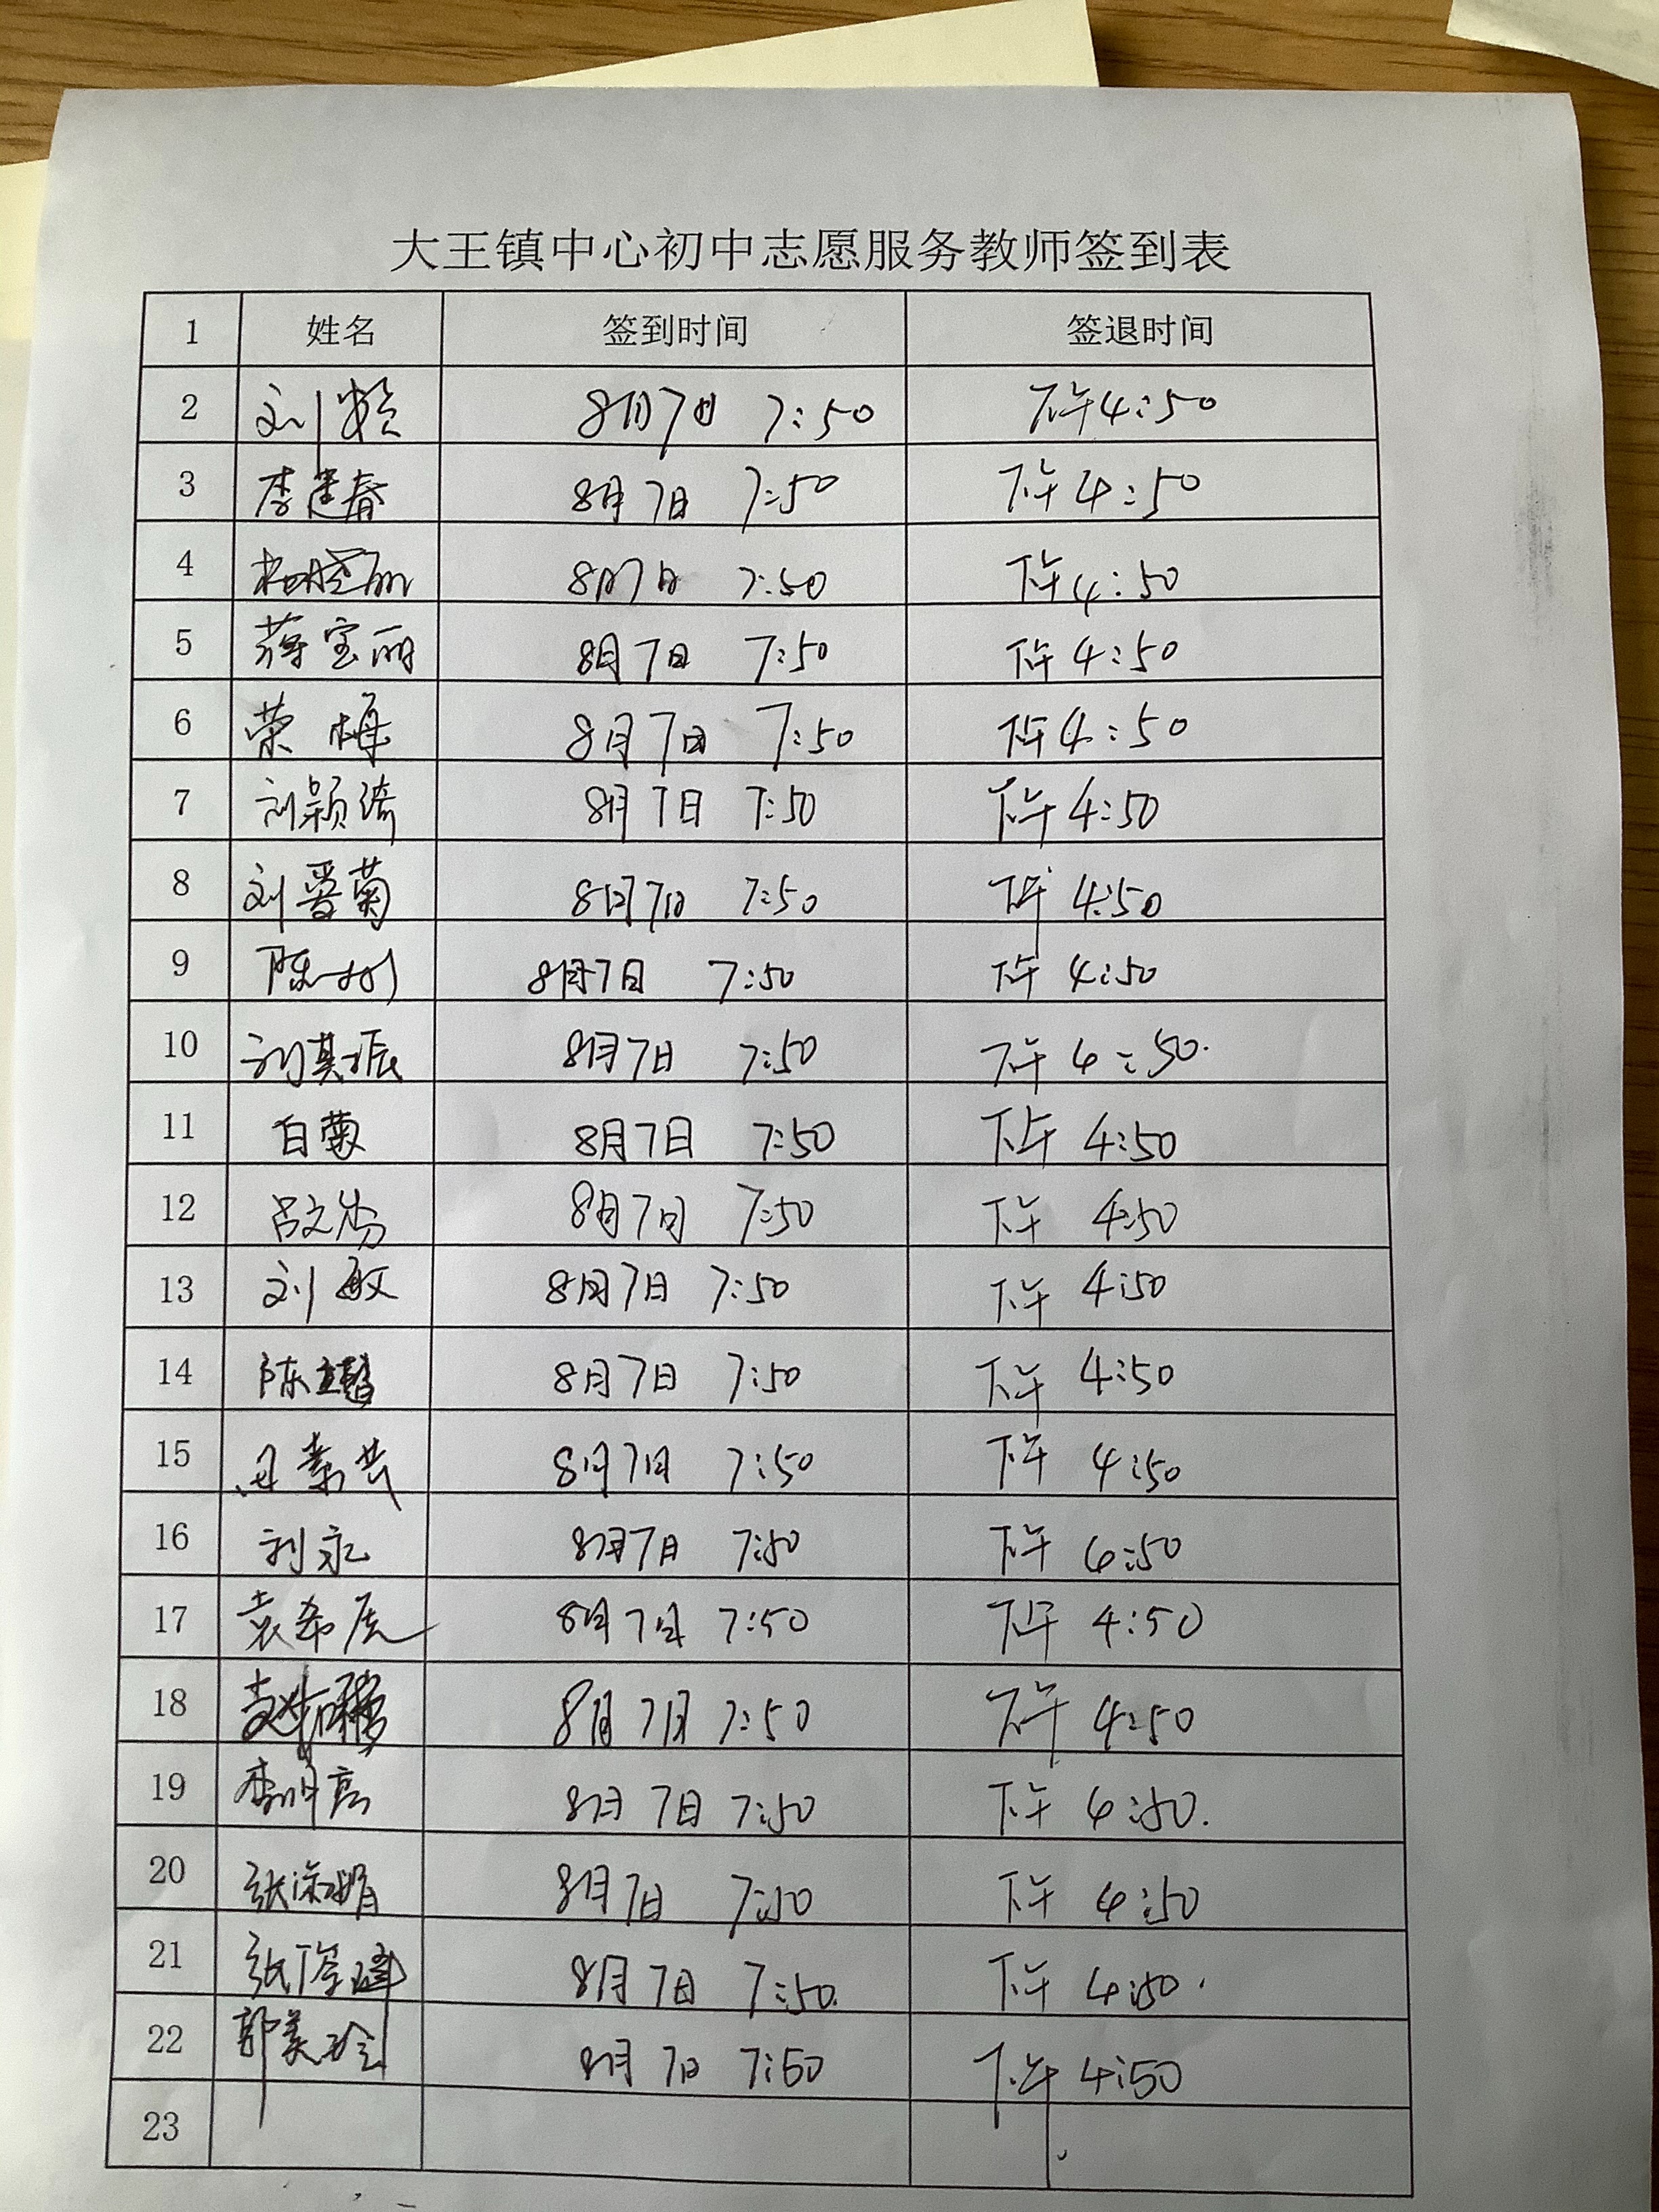 大王镇中心初中志愿服务教师签到表
1 姓名 签到时间 签退时间
2 刘 8月7日 7:50 下午4:50
3 李建春 8月7日 7:50 下午4:50
4 8月7日 7:50 下午4:50
5 蒋宝丽 8月7日 7:50 下午4:50
6 荣梅 8月7日 7:50 下午4:50
7 刘颖绮 8月7日 7:50 下午4:50
8 刘爱菊 8月7日 7:50 下午4:50
9 陈 8月7日 7:50 下午4:50
10 刘其振 8月7日 7:50 下午4:50.
11 白菊 8月7日 7:50 下午4:50
12 吕文 8月7日 7:50 下午4:50
13 刘敏 8月7日 7:50 下午4:50
14 陈 8月7日 7:50 下午4:50
15 8月7日 7:50 下午4:50
16 刘永 8月7日 7:50 下午4:50
17 袁希虎 8月7日 7:50 下午4:50
18 赵 8月7日 7:50 下午4:50
19 李明亮 8月7日 7:50 下午4:50.
20 张淑娟 8月7日 7:50 下午4:50
21 张 8月7日 7:50. 下午4:50.
22 郭美玲 8月7日 7:50 下午4:50
23